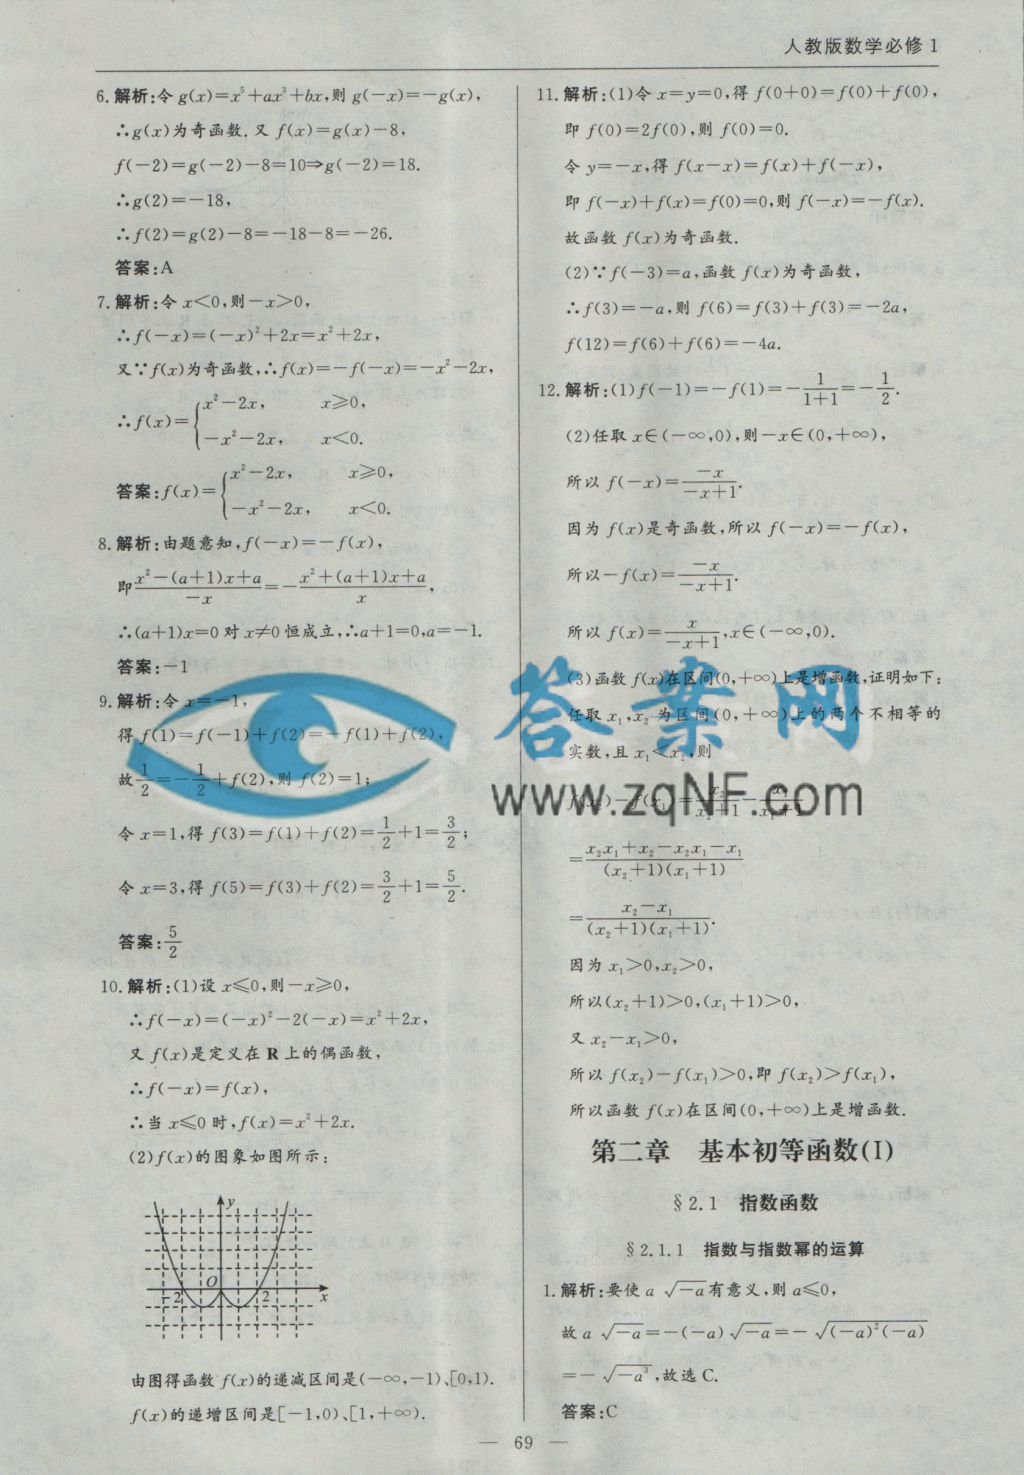 人教版数学必修 1
6. 解析:令 g(x)=x⁵+ax³+bx,则 g(-x)=-g(x),
∴g(x)为奇函数.又 f(x)=g(x)-8,
f(-2)=g(-2)-8=10⇒g(-2)=18.
∴g(2)=-18,
∴f(2)=g(2)-8=-18-8=-26.
答案:A
7. 解析:令 x<0,则-x>0,
∴f(-x)=(-x)²+2x=x²+2x,
又∵f(x)为奇函数,∴f(x)=-f(-x)=-x²-2x,
∴f(x)={x²-2x, x≥0,
-x²-2x, x<0.
答案:f(x)={x²-2x, x≥0,
-x²-2x, x<0.
8. 解析:由题意知,f(-x)=-f(x),
即(x²-(a+1)x+a)/(-x)=-(x²+(a+1)x+a)/x,
∴(a+1)x=0 对 x≠0 恒成立,∴a+1=0,a=-1.
答案:-1
9. 解析:令 x=-1,
得 f(1)=f(-1)+f(2)=-f(1)+f(2),
故 1/2=-1/2+f(2),则 f(2)=1;
令 x=1,得 f(3)=f(1)+f(2)=1/2+1=3/2;
令 x=3,得 f(5)=f(3)+f(2)=3/2+1=5/2.
答案:5/2
10. 解析:(1)设 x≤0,则-x≥0,
∴f(-x)=(-x)²-2(-x)=x²+2x,
又 f(x)是定义在 R 上的偶函数,
∴f(-x)=f(x),
∴当 x≤0 时,f(x)=x²+2x.
(2)f(x)的图象如图所示:
y
O
-2
2
x
由图得函数 f(x)的递减区间是(-∞,-1)、[0,1).
f(x)的递增区间是[-1,0)、[1,+∞).
11. 解析:(1)令 x=y=0,得 f(0+0)=f(0)+f(0),
即 f(0)=2f(0),则 f(0)=0.
令 y=-x,得 f(x-x)=f(x)+f(-x),
即 f(-x)+f(x)=f(0)=0,则 f(-x)=-f(x).
故函数 f(x)为奇函数.
(2)∵f(-3)=a,函数 f(x)为奇函数,
∴f(3)=-a,则 f(6)=f(3)+f(3)=-2a,
f(12)=f(6)+f(6)=-4a.
12. 解析:(1)f(-1)=-f(1)=-1/(1+1)=-1/2.
(2)任取 x∈(-∞,0),则-x∈(0,+∞),
所以 f(-x)=(-x)/(-x+1).
因为 f(x)是奇函数,所以 f(-x)=-f(x),
所以-f(x)=(-x)/(-x+1).
所以 f(x)=x/(-x+1),x∈(-∞,0).
(3)函数 f(x)在区间(0,+∞)上是增函数,证明如下:
任取 x₁,x₂ 为区间(0,+∞)上的两个不相等的
实数,且 x₁<x₂,则
=(x₂x₁+x₂-x₂x₁-x₁)/((x₂+1)(x₁+1))
=(x₂-x₁)/((x₂+1)(x₁+1)).
因为 x₁>0,x₂>0,
所以(x₂+1)>0,(x₁+1)>0,
又 x₂-x₁>0,
所以 f(x₂)-f(x₁)>0,即 f(x₂)>f(x₁),
所以函数 f(x)在区间(0,+∞)上是增函数.
第二章 基本初等函数(Ⅰ)
§2.1 指数函数
§2.1.1 指数与指数幂的运算
1. 解析:要使 a√(-a)有意义,则 a≤0,
故 a√(-a)=-(-a)√(-a)=-√((-a)²(-a))
=-√(-a³),故选 C.
答案:C
— 69 —
答案网
www.zqNF.com